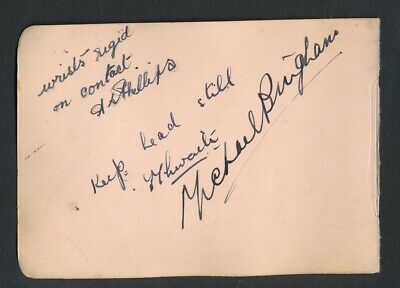 wrists rigid
on contact.
Phillips
Keep head still
Michael Bingham